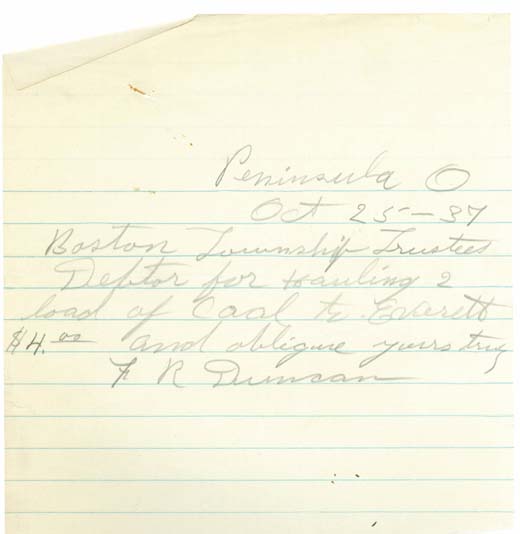 Peninsula O
Oct 25-37
Boston Township Trustees
Debtor for Hauling 2
load of Coal to Everett
$4.00 and oblique yours truly
F R Duncan